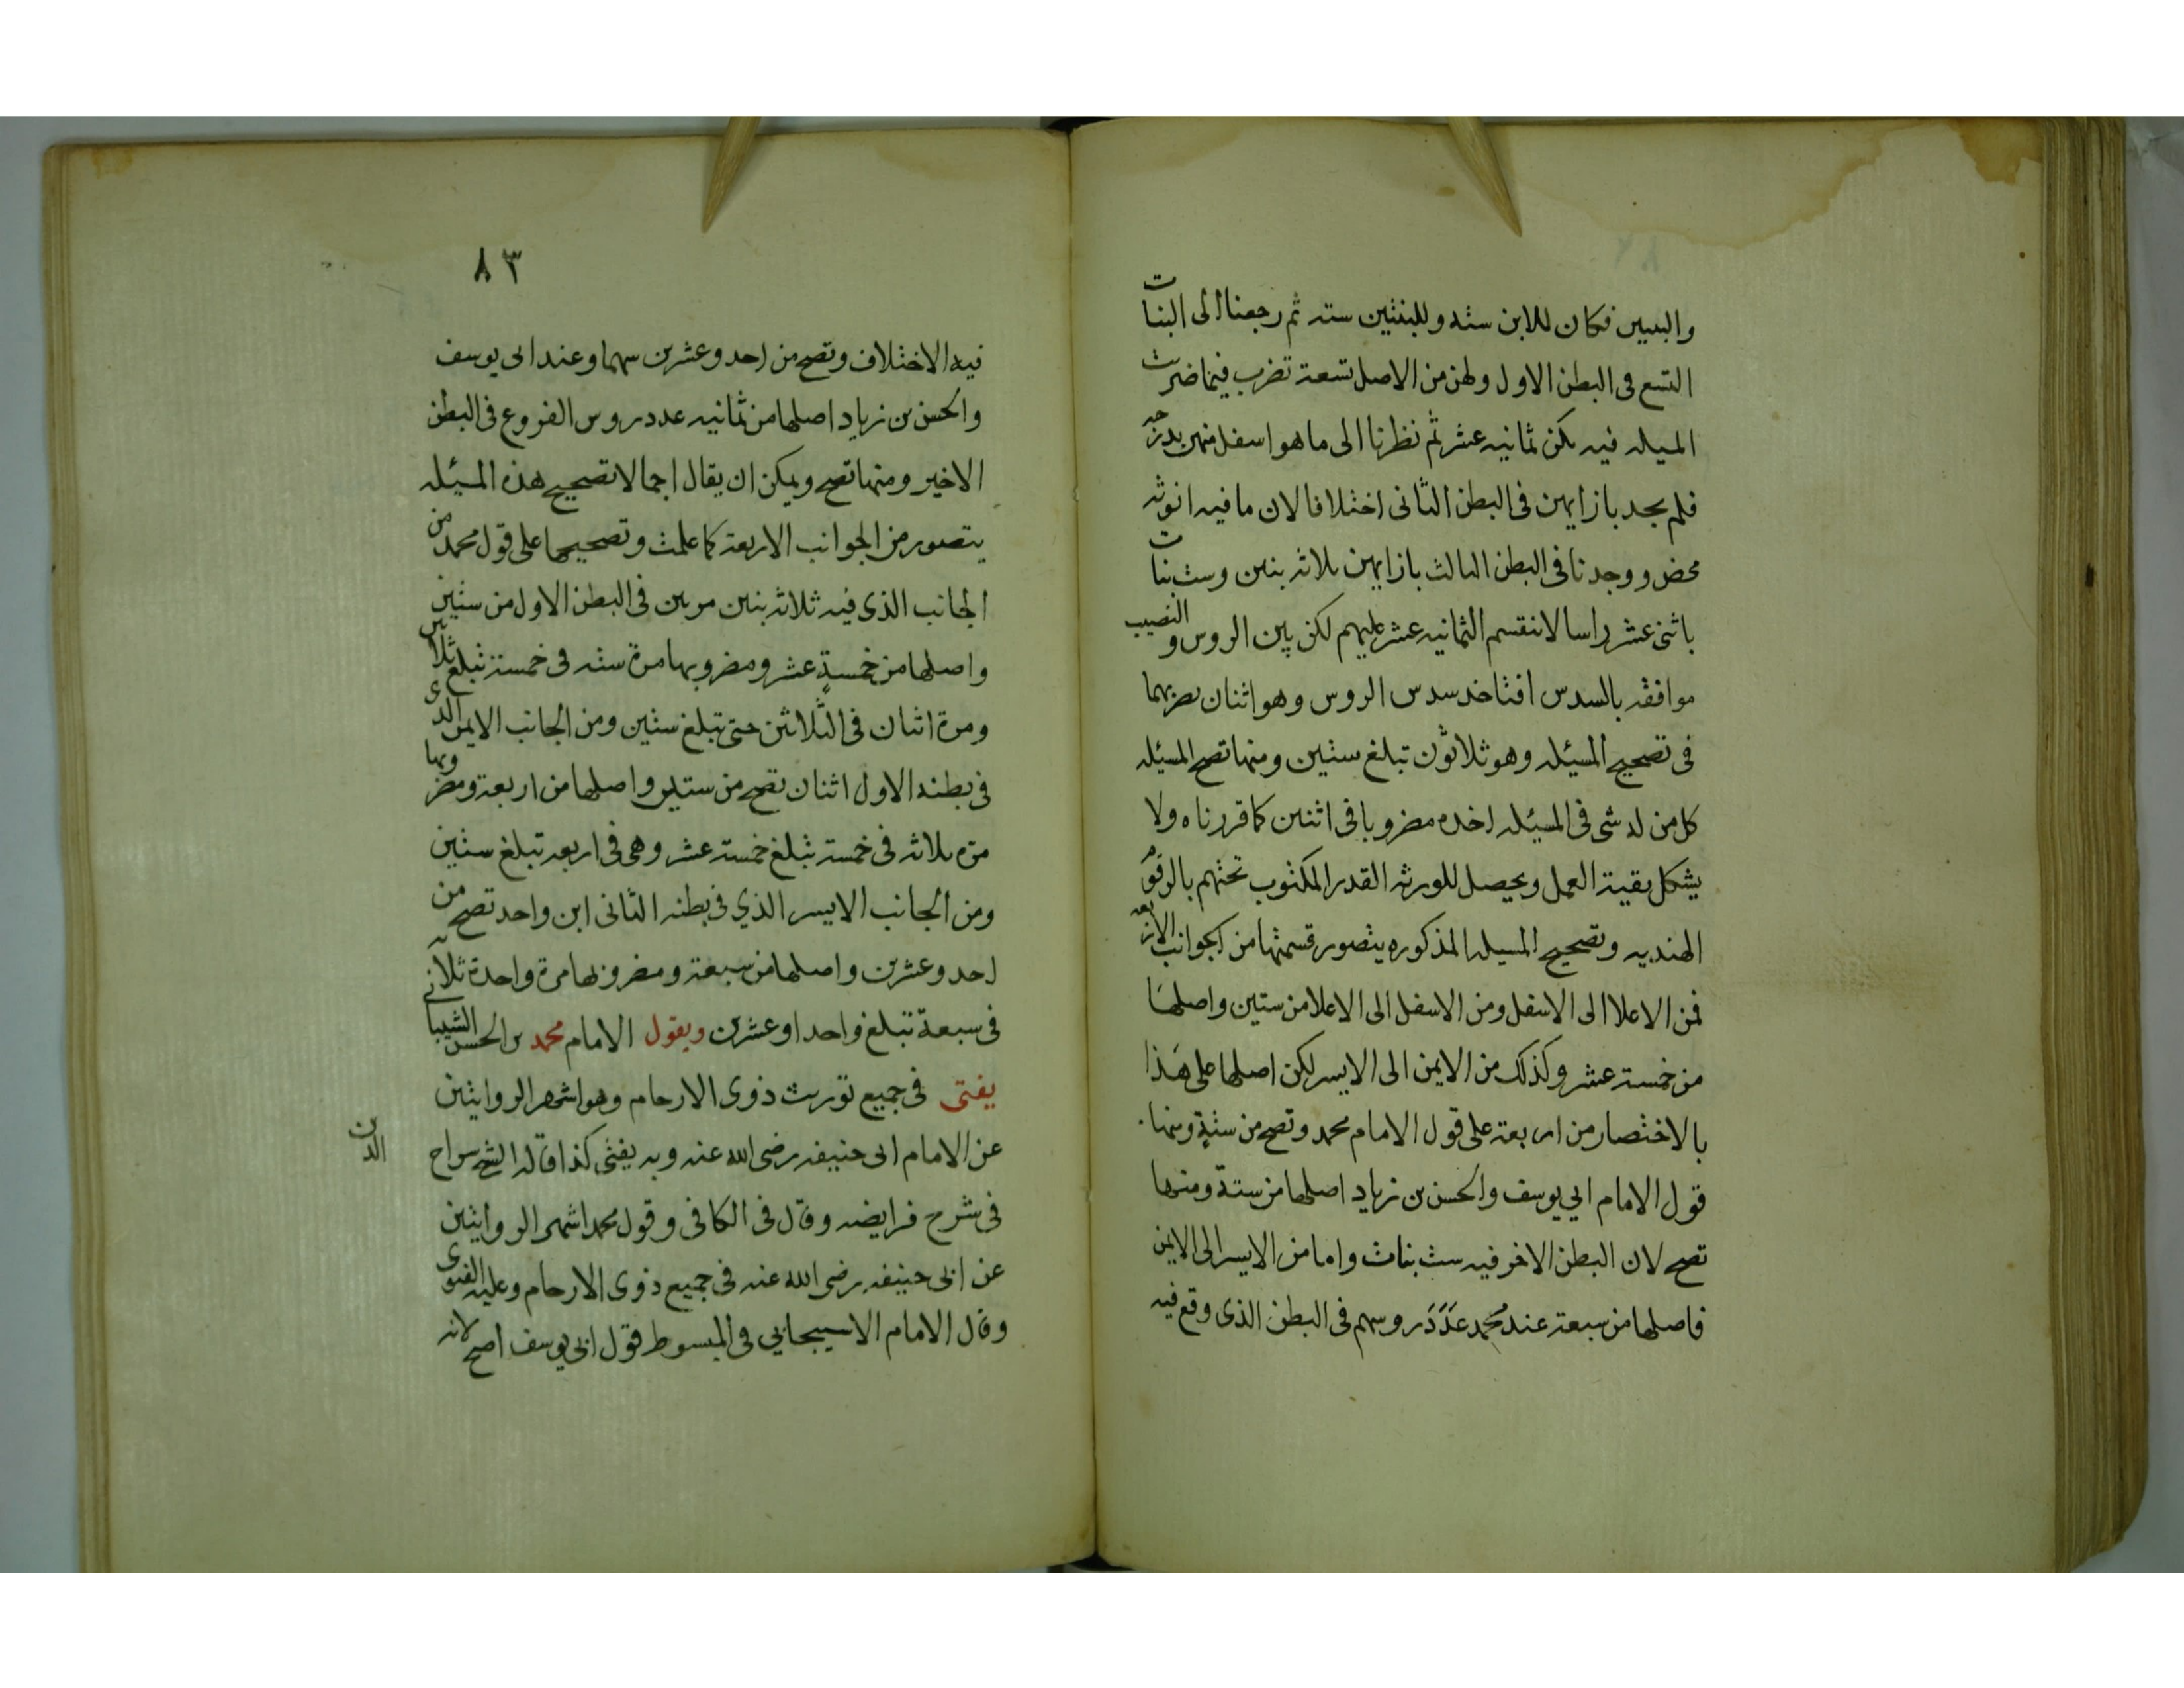 والبنتين فكان للابن سته وللبنتين سته ثم رجعنا الى البنات
التسع فى البطن الاول ولهن من الاصل تسعة تضرب فيما ضربت
المسيله فيه يكن ثمانيه عشر ثم نظرنا الى ما هو اسفل منهن بدرجه
فلم نجد بازايهن فى البطن الثانى اختلافا لان ما فيه انوثه
محض ووجدنا فى البطن الثالث بازايهن ثلاثه بنين وست بنات
باثنى عشر راسا لا تنقسم الثمانيه عشر عليهم لكن بين الروس والنصيب
موافقه بالسدس افتاخد سدس الروس وهو اثنان تضربهما
فى تصحيح المسئله وهو ثلاثون تبلغ ستين ومنها تصح المسئله
كل من له شى فى المسئله اخده مضروبا فى اثنين كما قررناه ولا
يشكل بقية العمل ويحصل للورثه القدر المكتوب تحتهم بالرقوم
الهنديه وتصحيح المسيله المذكوره يتصور قسمتها من الجوانب الاربعه
فمن الاعلا الى الاسفل ومن الاسفل الى الاعلا من ستين واصلها
من خمسة عشر وكذلك من الايمن الى الايسر لكن اصلها على هذا
بالاختصار من اربعة على قول الامام محمد وتصح من ستة ومنها
قول الامام ابي يوسف والحسن بن زياد اصلها من ستة ومنها
تصح لان البطن الاخر فيه ست بنات واما من الايسر الى الايمن
فاصلها من سبعة عند محمد عدد روسهم فى البطن الذى وقع فيه
٨٣
فيه الاختلاف وتصح من احد وعشرين سهما وعند ابى يوسف
والحسن بن زياد اصلها من ثمانيه عدد روس الفروع فى البطن
الاخير ومنها تصح ويمكن ان يقال اجمالا تصحيح هذه المسئله
يتصور من الجوانب الاربعة كما علمت وتصحيحها على قول محمد من
الجانب الذى فيه ثلاثه بنين مرتين فى البطن الاول من ستين
واصلها من خمسة عشر ومضروبها مرة سته فى خمسة تبلغ ثلاثين
ومرة اثنان فى الثلاثين حتى تبلغ ستين ومن الجانب الايمن الذى
فى بطنه الاول اثنان تصح من ستين واصلها من اربعة ومضروبها
مره ثلاثه فى خمسة تبلغ خمسة عشر وهى فى اربعه تبلغ ستين
ومن الجانب الايسر الذي فى بطنه الثانى ابن واحد تصح من
احد وعشرين واصلها من سبعة ومضروبها مرة واحدة ثلاثه
فى سبعة تبلغ واحدا وعشرين وبقول الامام محمد بن الحسن الشيبانى
يفتى فى جميع توريث ذوى الارحام وهو اشهر الروايتين
عن الامام ابى حنيفه رضى الله عنه وبه يفتى كذا قاله الشيخ سراج
الدين
فى شرح فرايضه وقال فى الكافى وقول محمد اشهر الروايتين
عن ابى حنيفه رضى الله عنه فى جميع ذوى الارحام وعليه الفتوى
وقال الامام الاسبيجابي فى المبسوط قول ابى يوسف اصح لانه